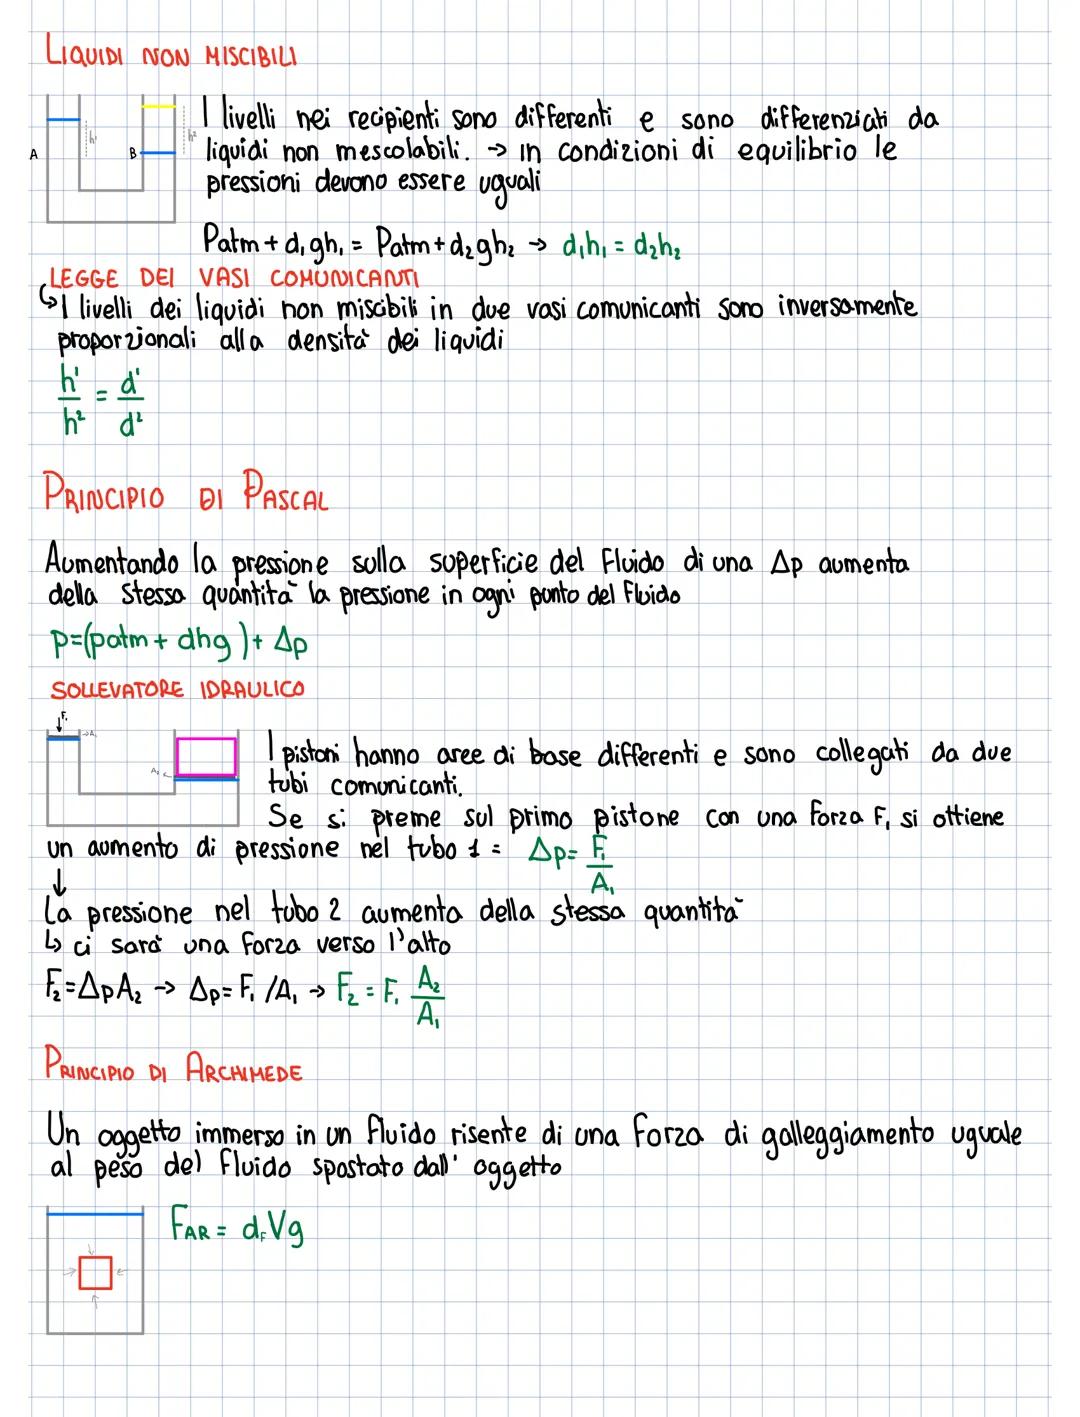 LIQUIDI NON MISCIBILI
I livelli nei recipienti sono differenti e sono differenziati da
h¹
h²
A
B
liquidi non mescolabili. → in condizioni di equilibrio le
pressioni devono essere uguali
Patm + d₁gh₁ = Patm + d₂gh₂ → d₁h₁ = d₂h₂
LEGGE DEI VASI COMUNICANTI
↳ I livelli dei liquidi non miscibili in due vasi comunicanti sono inversamente
proporzionali alla densità dei liquidi
h¹/h² = d¹/d²
PRINCIPIO DI PASCAL
Aumentando la pressione sulla superficie del fluido di una Δp aumenta
della stessa quantità la pressione in ogni punto del fluido
p=(patm + dhg) + Δp
SOLLEVATORE IDRAULICO
F₁
→A₁
A₂ ←
I pistoni hanno aree di base differenti e sono collegati da due
tubi comunicanti.
Se si preme sul primo pistone con una forza F₁ si ottiene
un aumento di pressione nel tubo 1 = Δp = F₁/A₁
↓
La pressione nel tubo 2 aumenta della stessa quantità
↳ ci sarà una forza verso l'alto
F₂ = ΔpA₂ → Δp = F₁/A₁ → F₂ = F₁ A₂/A₁
PRINCIPIO DI ARCHIMEDE
Un oggetto immerso in un fluido risente di una forza di galleggiamento uguale
al peso del fluido spostato dall' oggetto
FAR = dFVg